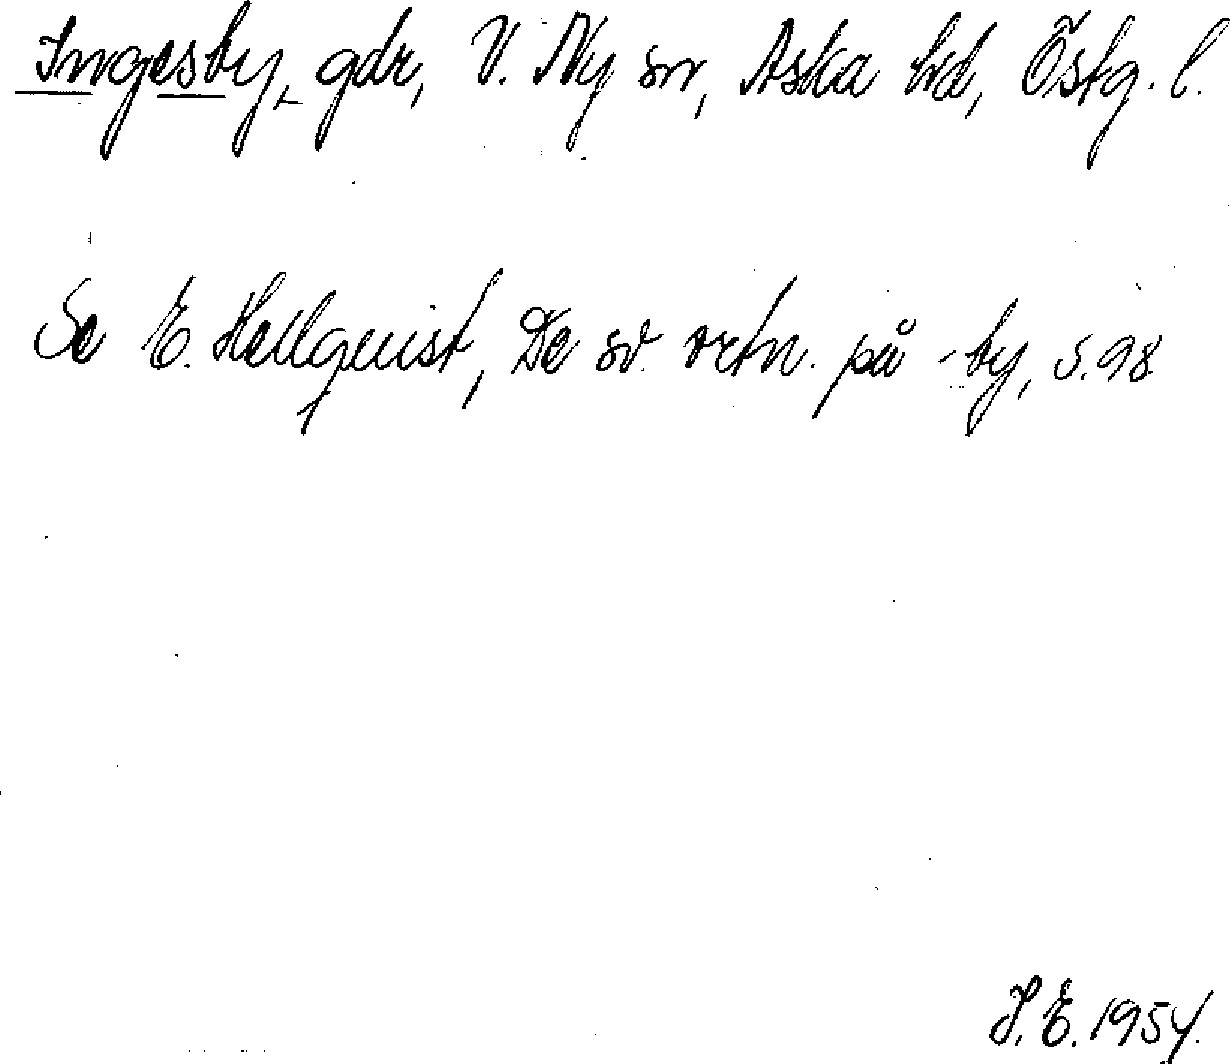 Ingesby, gdr, V. Ny sn, Aska hd, Östg. l.
Se E. Hellquist, De sv. ortn. på -by, s. 98
J. E. 1954.